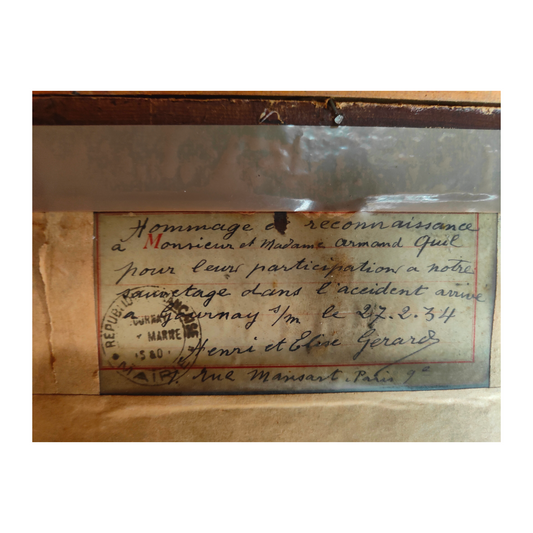 Hommage de reconnaissance
à Monsieur et Madame Armand Quil
pour leur participation a notre
sauvetage dans l'accident arrivé
a Gournay s/m le 27.2.34
Henri et Elise Gerard
rue Mansart. Paris 9e
REPUBLI
MARNE
MAIRIE